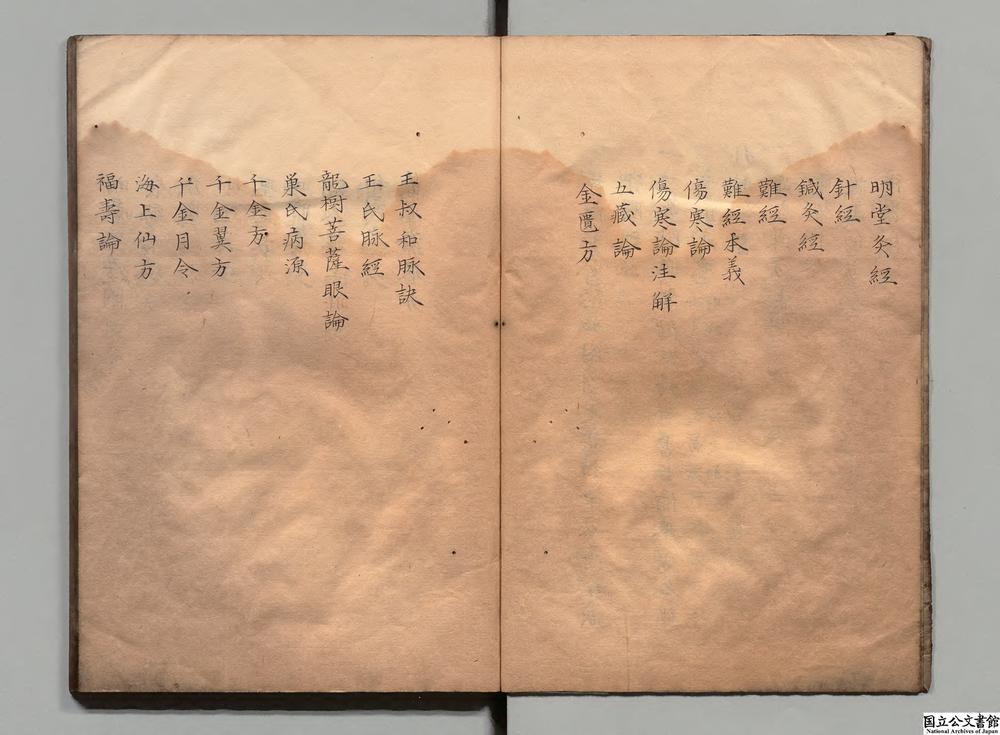 明堂灸經
針經
鍼灸經
難經
難經本義
傷寒論
傷寒論注解
五藏論
金匱方
王叔和脉訣
王氏脉經
龍樹菩薩眼論
巢氏病源
千金方
千金翼方
千金月令
海上仙方
福壽論
国立公文書館
National Archives of Japan